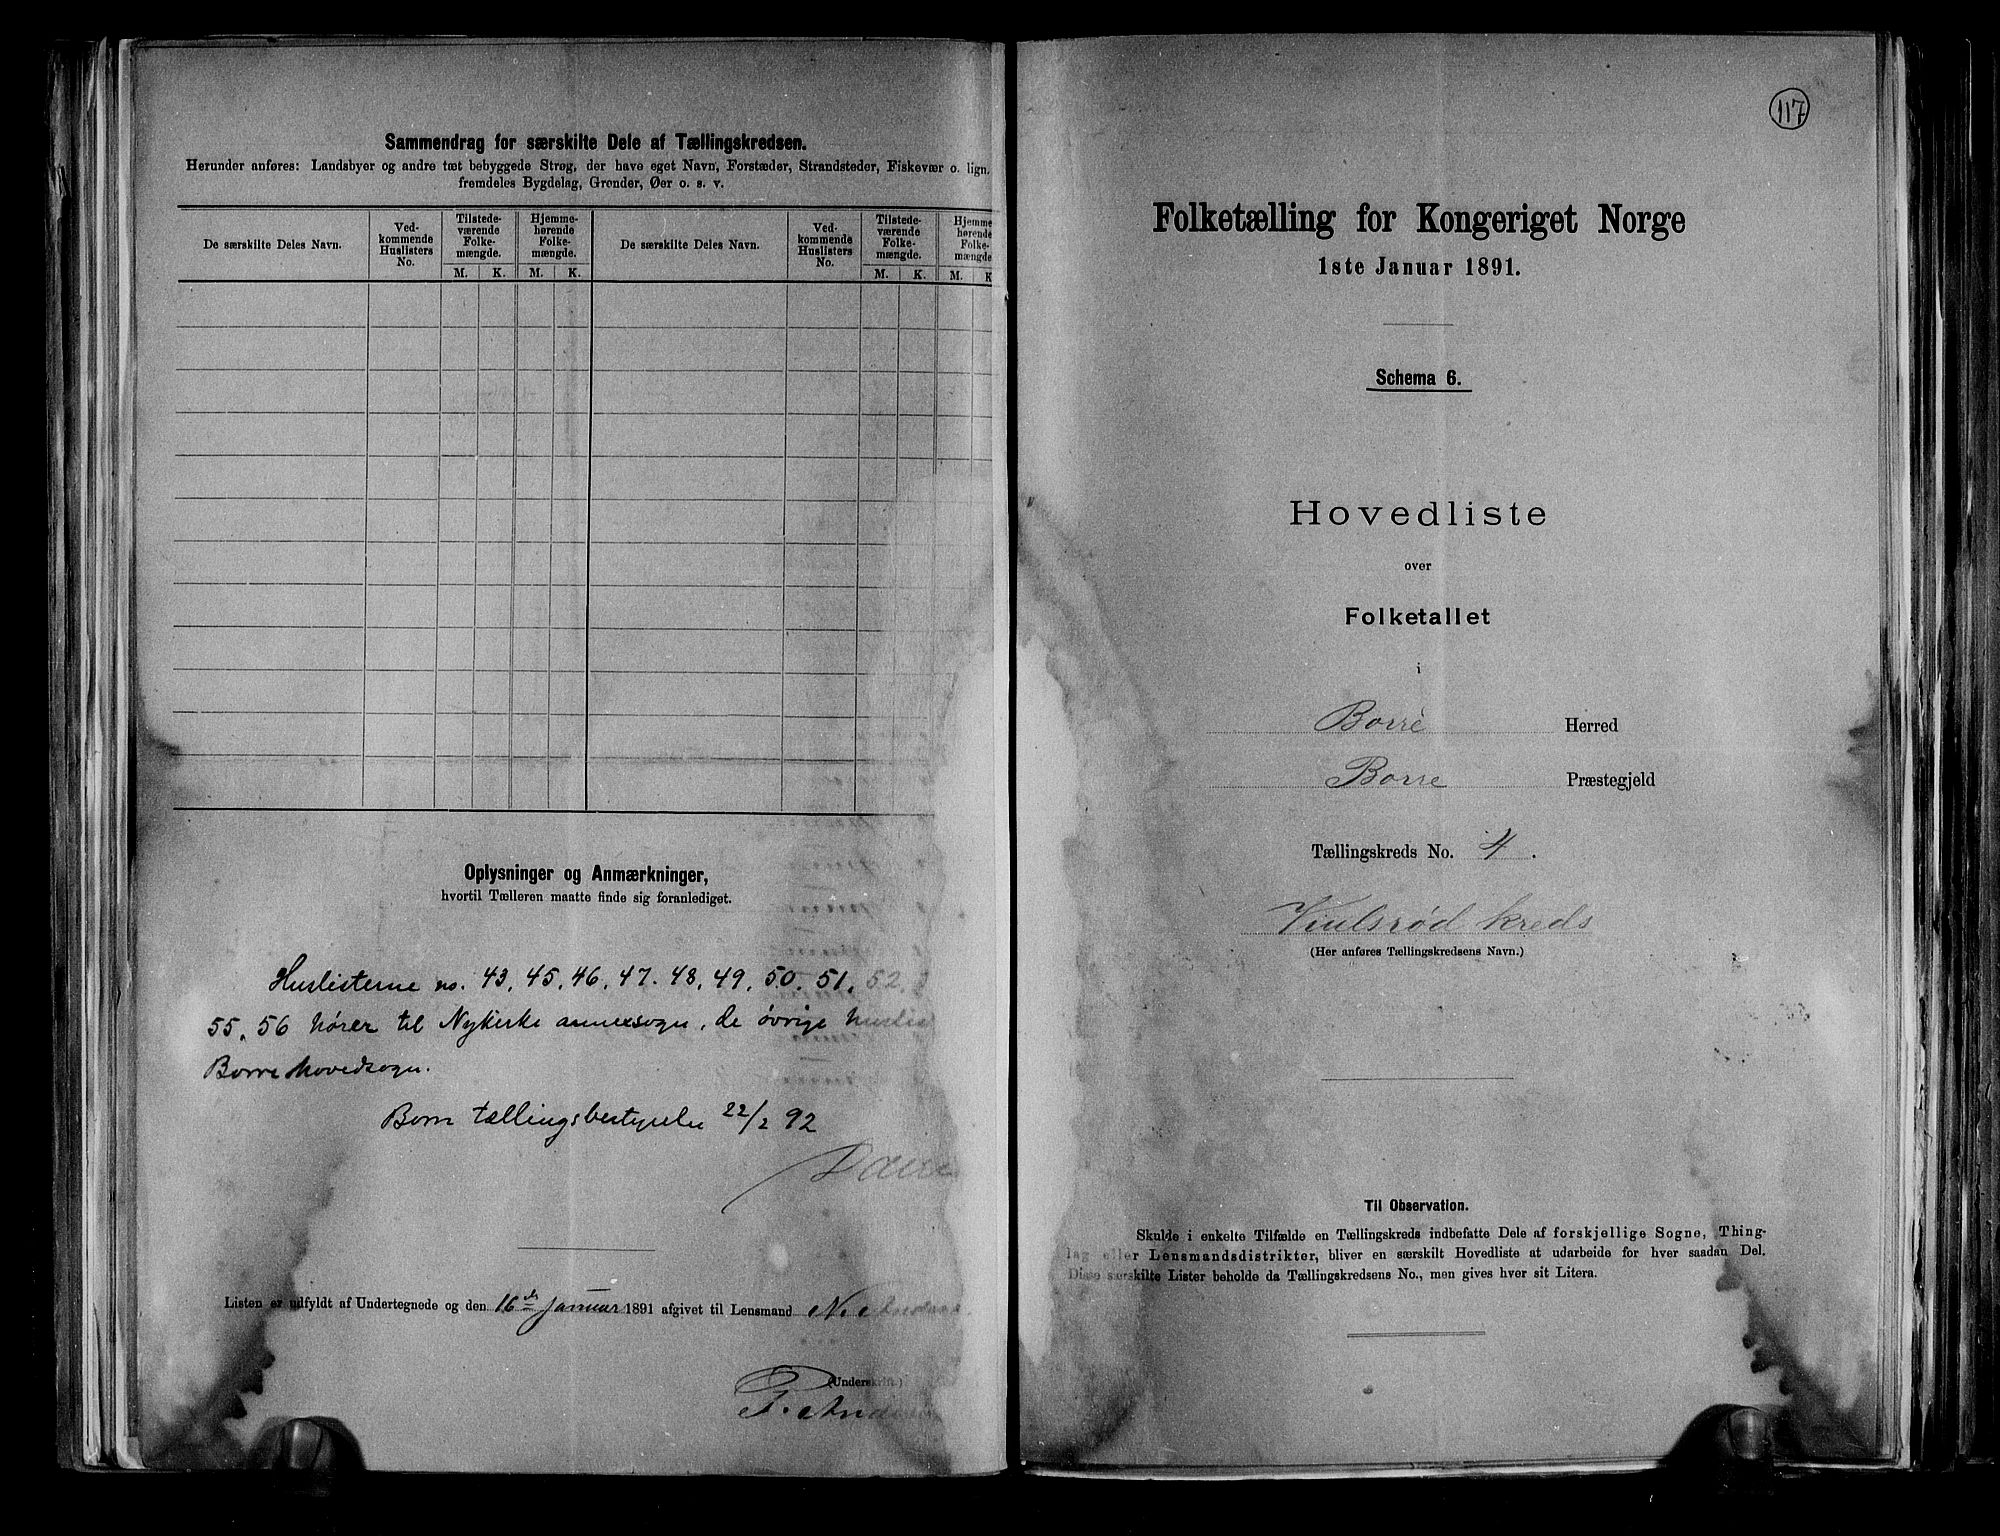 Sammendrag for særskilte Dele af Tællingskredsen.
Herunder anføres: Landsbyer og andre tæt bebyggede Strøg, der have eget Navn, Forstæder, Strandsteder, Fiskevær o. lign.
fremdeles Bygdelag, Grender, Øer o. s. v.
De særskilte Deles Navn.
Ved-
kommende
Huslisters
No.
Tilstede-
værende
Folke-
mængde.
M. K.
Hjemme-
hørende
Folke-
mængde.
M. K.
De særskilte Deles Navn.
Ved-
kommende
Huslisters
No.
Tilstede-
værende
Folke-
mængde.
M. K.
Hjemme
hørende
Folke-
mængde
M. K
Oplysninger og Anmærkninger,
hvortil Tælleren maatte finde sig foranlediget.
Huslisterne no. 43, 45, 46, 47. 48, 49, 50. 51. 52.
55. 56 hører til Nykirke annexsogn, de øvrige huslis
Borre hovedsogn.
Borre tællingsbestyrelse 22/2 92
Listen er udfyldt af Undertegnede og den 16de Januar 1891 afgivet til Lensmand N.
(Underskrift.)
117
Folketælling for Kongeriget Norge
1ste Januar 1891.
Schema 6.
Hovedliste
over
Folketallet
i
Borre Herred
Borre Præstegjeld
Tællingskreds No. 4.
kreds
(Her anføres Tællingskredsens Navn.)
Til Observation.
Skulde i enkelte Tilfælde en Tællingskreds indbefatte Dele af forskjellige Sogne, Thing-
lag eller Lensmandsdistrikter, bliver en særskilt Hovedliste at udarbeide for hver saadan Del.
Disse særskilte Lister beholde da Tællingskredsens No., men gives hver sit Litera.